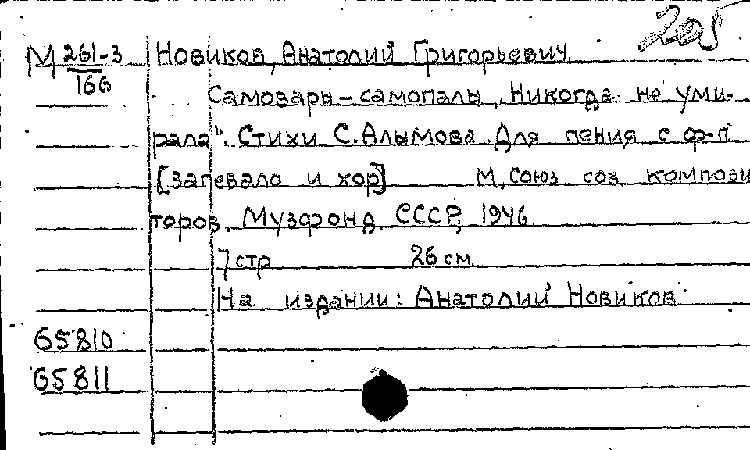 205
М 261-3 Новиков, Анатолий Григорьевич
166
Самовары-самопалы, "Никогда не уми-
рала". Стихи С. Алымова. Для пения с ф-п
[запевала и хор] М, Союз сов компози
торов. Музфонд СССР, 1946
7 стр 26 см
На издании: Анатолий Новиков
65810
65811